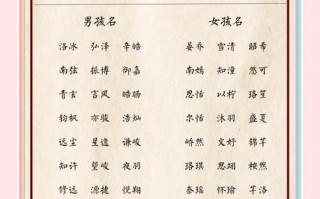 男孩名 女孩名
洛冰 弘泽 辛皓 晏乔 雪清 昭希
南弦 振博 御嘉 南嫣 知潼 悠可
青玄 言风 皓肠 思恬 以柠 珞笙
钧枫 章逸 浩灿 尔恬 沐羽 盛夏
远尘 星逸 谦峻 娇然 文妤 锦芊
知许 望峻 夜羽 珞琪 思翊 桉然
修远 源捷 悦翔 奈瑶 怀瑜 芊洛